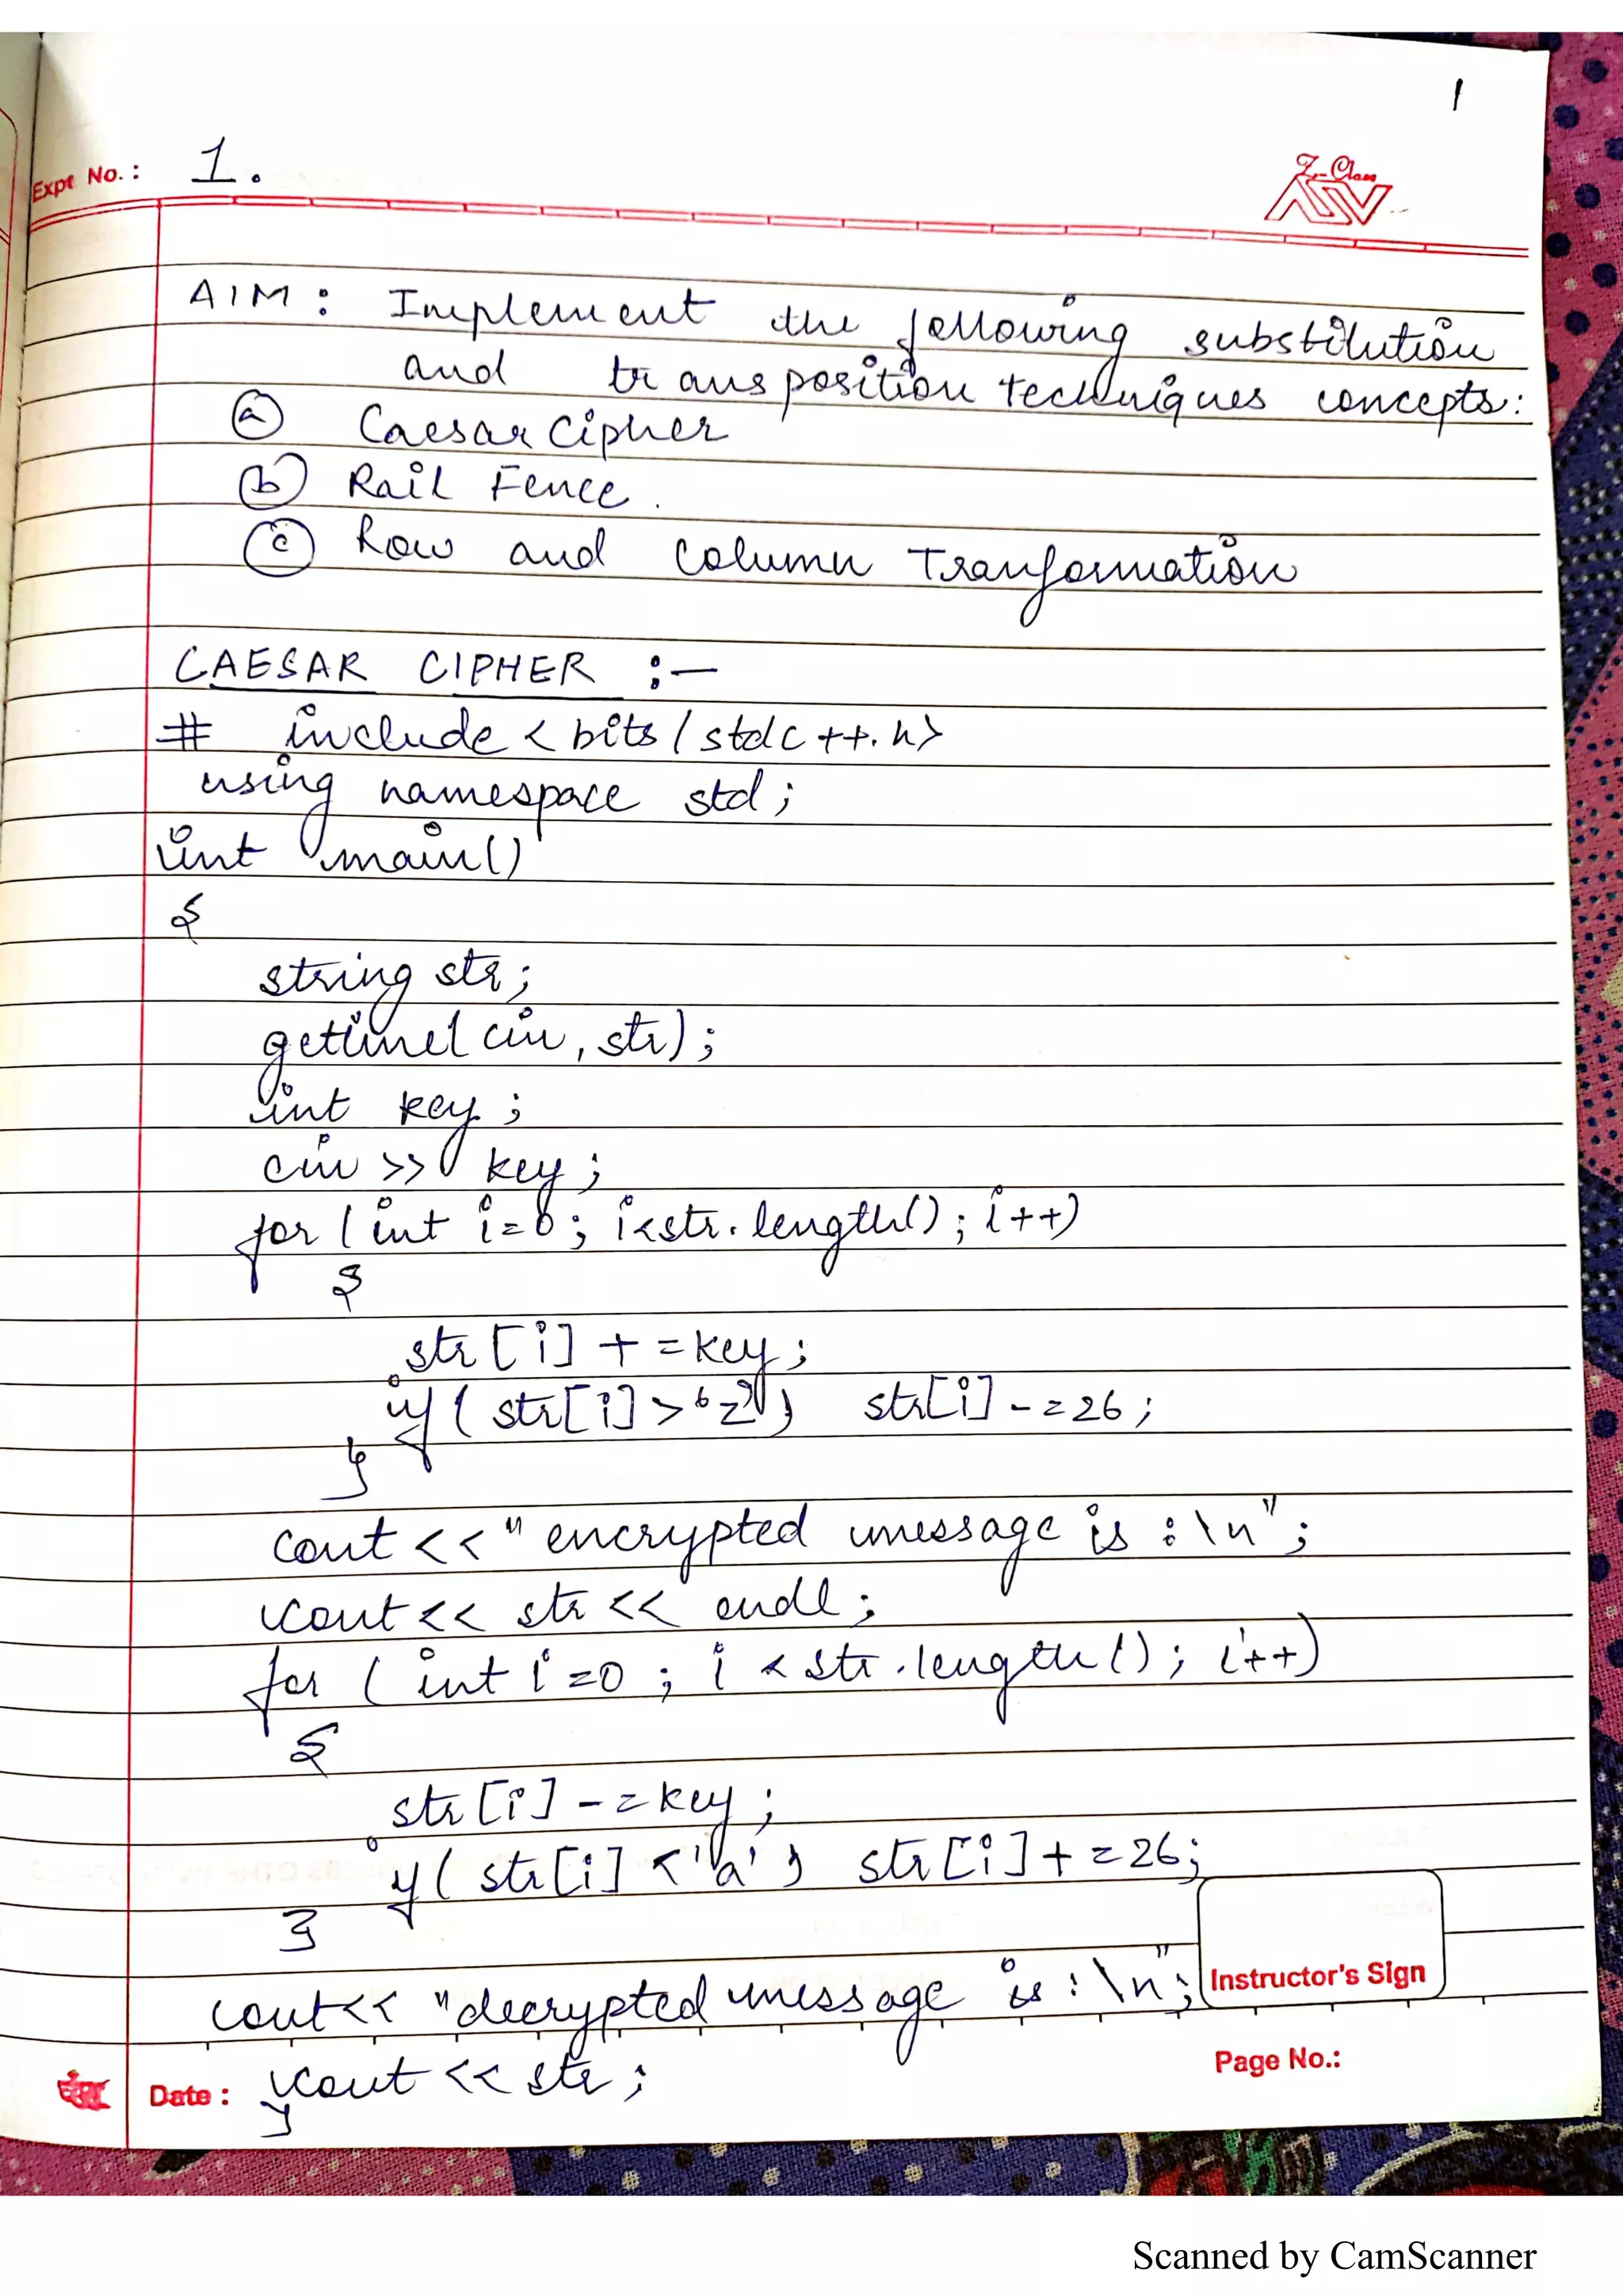 1
Expt No. : 1.
Z-Class
AIM : Implement the following substitution
and transposition techniques concepts:
(a) Caesar Cipher
(b) Rail Fence.
(c) Row and Column Tranformation
CAESAR CIPHER :-
# include < bits / stdc ++.h>
using namespace std;
int main()
{
string str;
getline( cin, str);
int key;
cin >> key;
for ( int i=0; i<str.length(); i++)
{
str [i] + =key;
if ( str[i] > 'z' ) str[i] - = 26;
}
cout << "encrypted message is :\n";
cout << str << endl;
for ( int i =0 ; i < str.length(); i++)
{
str [i] - = key;
if ( str[i] < 'a' ) str [i] + = 26;
}
cout<< "decrypted message is : \n";
Instructor's Sign
cout << str;
}
Page No.:
Date :
Scanned by CamScanner